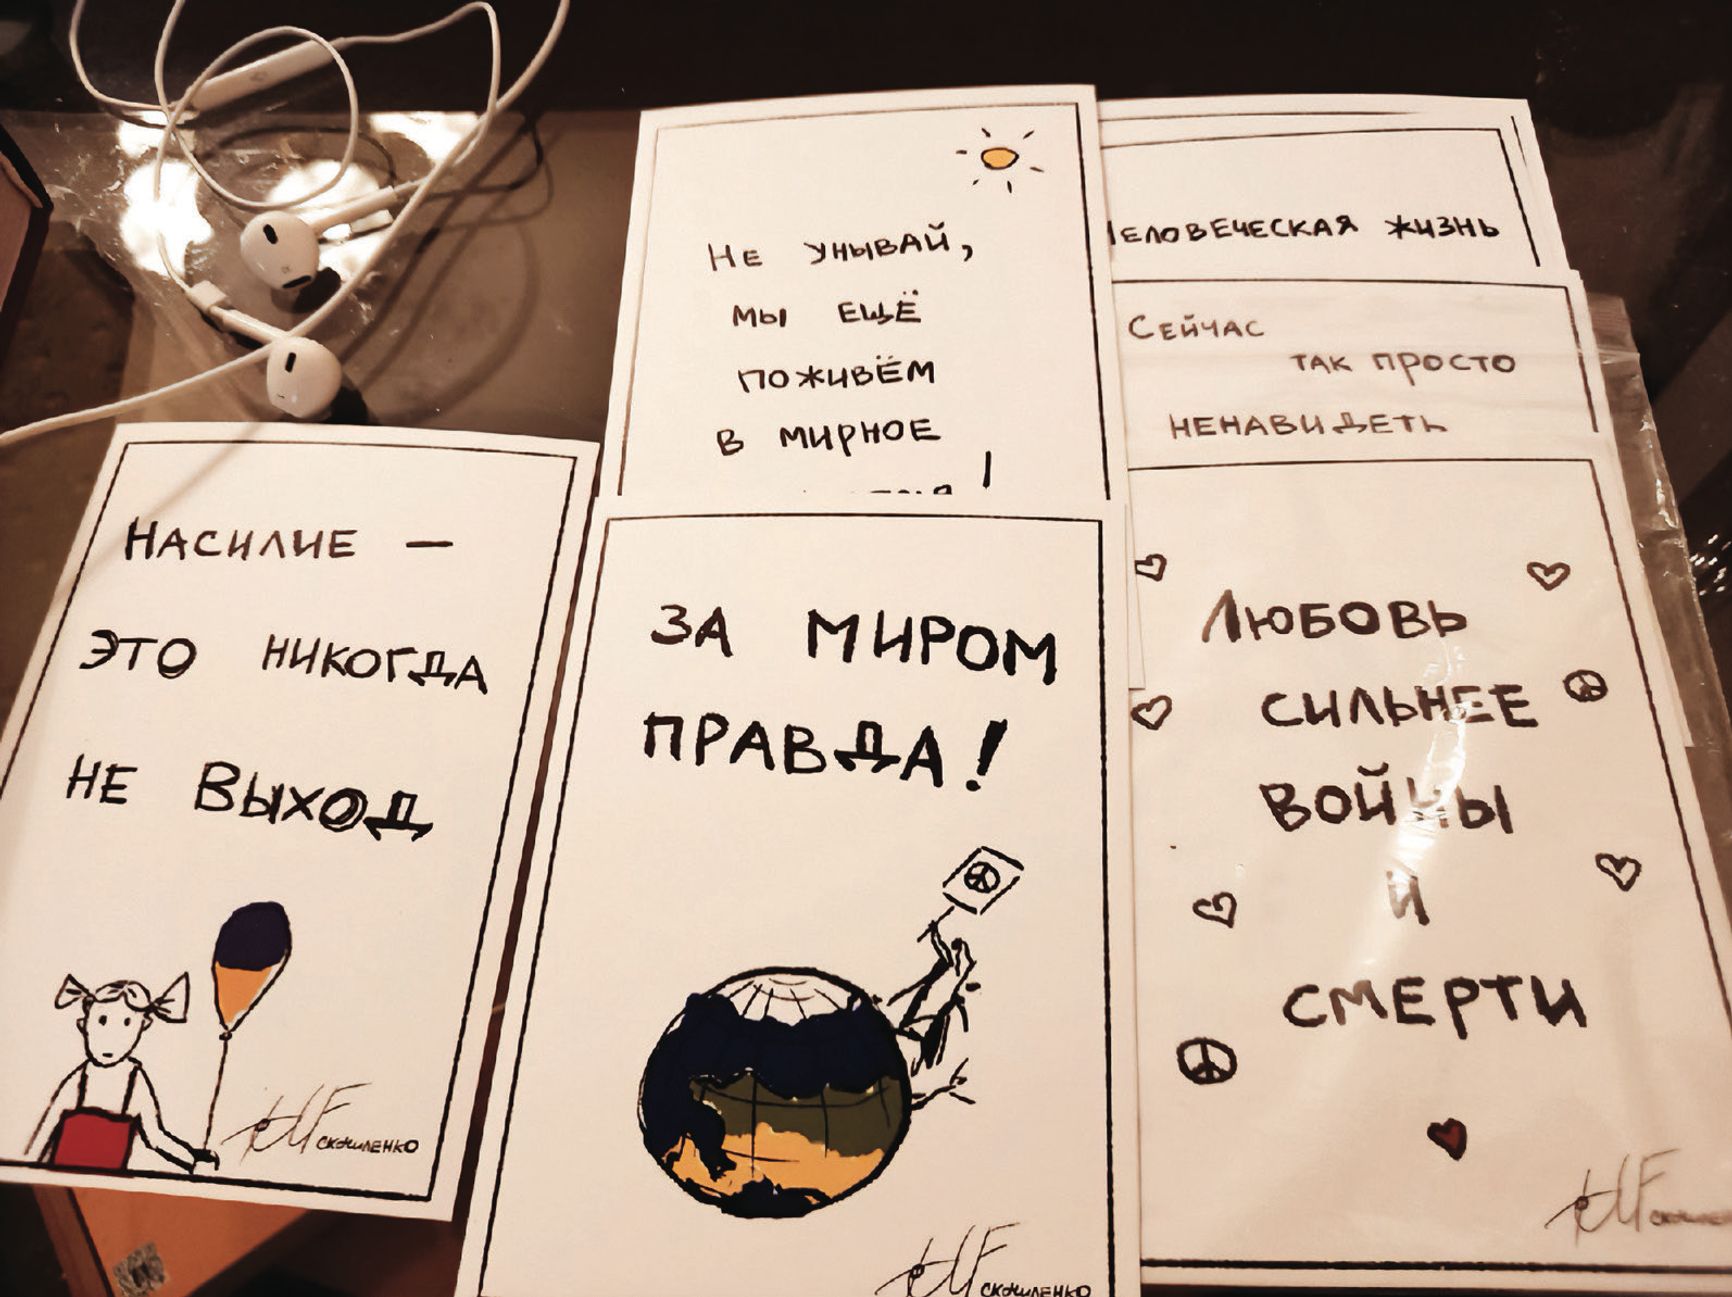 Не унывай,
мы ещё
поживём
в мирное
!
Человеческая жизнь
Сейчас
так просто
ненавидеть
Насилие —
это никогда
не выход
Скочиленко
За миром
правда!
Скочиленко
Любовь
сильнее
войны
и
смерти